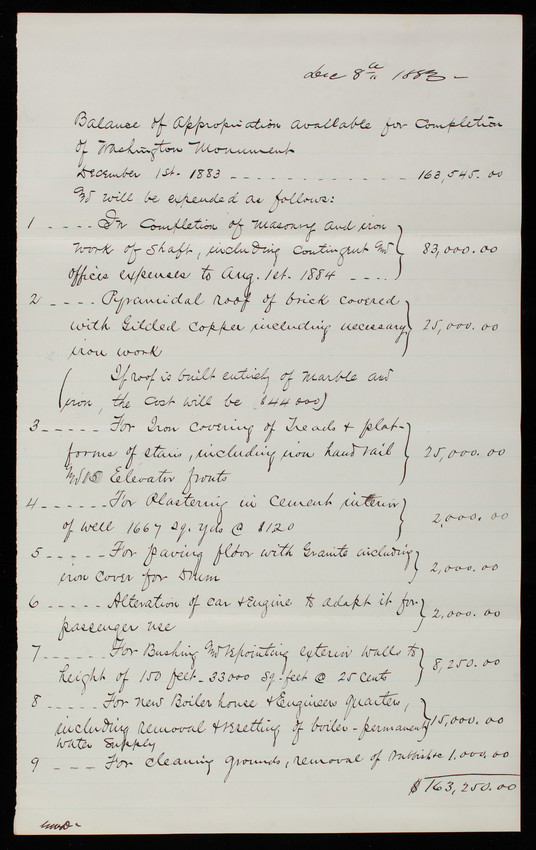 Dec 8th 1883 -
Balance of Appropriation available for Completion
of Washington Monument
December 1st. 1883 - - - - - - - - - - - - - - 163,545.00
and will be expended as follows:
1 - - - - In Completion of Masonry and iron
work of Shaft, including Contingent and } 83,000.00
offices expenses to Aug. 1st. 1884 - - - -
2 - - - - Pyramidal roof of brick covered
with Gilded Copper including necessary } 25,000.00
iron work
( If roof is built entirely of Marble and
iron, the Cost will be $44000)
3 - - - - - For Iron covering of Treads & plat-
forms of stairs, including iron hand rail } 25,000.00
and 15 Elevator fronts
4 - - - - - - For Plastering in cement interior
of well 1667 Sq. yds @ $120 } 2,000.00
5 - - - - - For paving floor with Granite including
iron cover for Drum } 2,000.00
6 - - - - - Alteration of car & Engine to adapt it for
passenger use } 2,000.00
7 - - - - - - For Bushing and repointing exterior walls to
height of 150 feet - 33000 Sq. feet @ 25 cents } 8,250.00
8 - - - - - - For new Boiler house & Engineers quarters,
including removal & resetting of boiler - permanent } 15,000.00
Water Supply
9 - - - - For cleaning grounds, removal of rubbish &c 1.000.00
$163,250.00